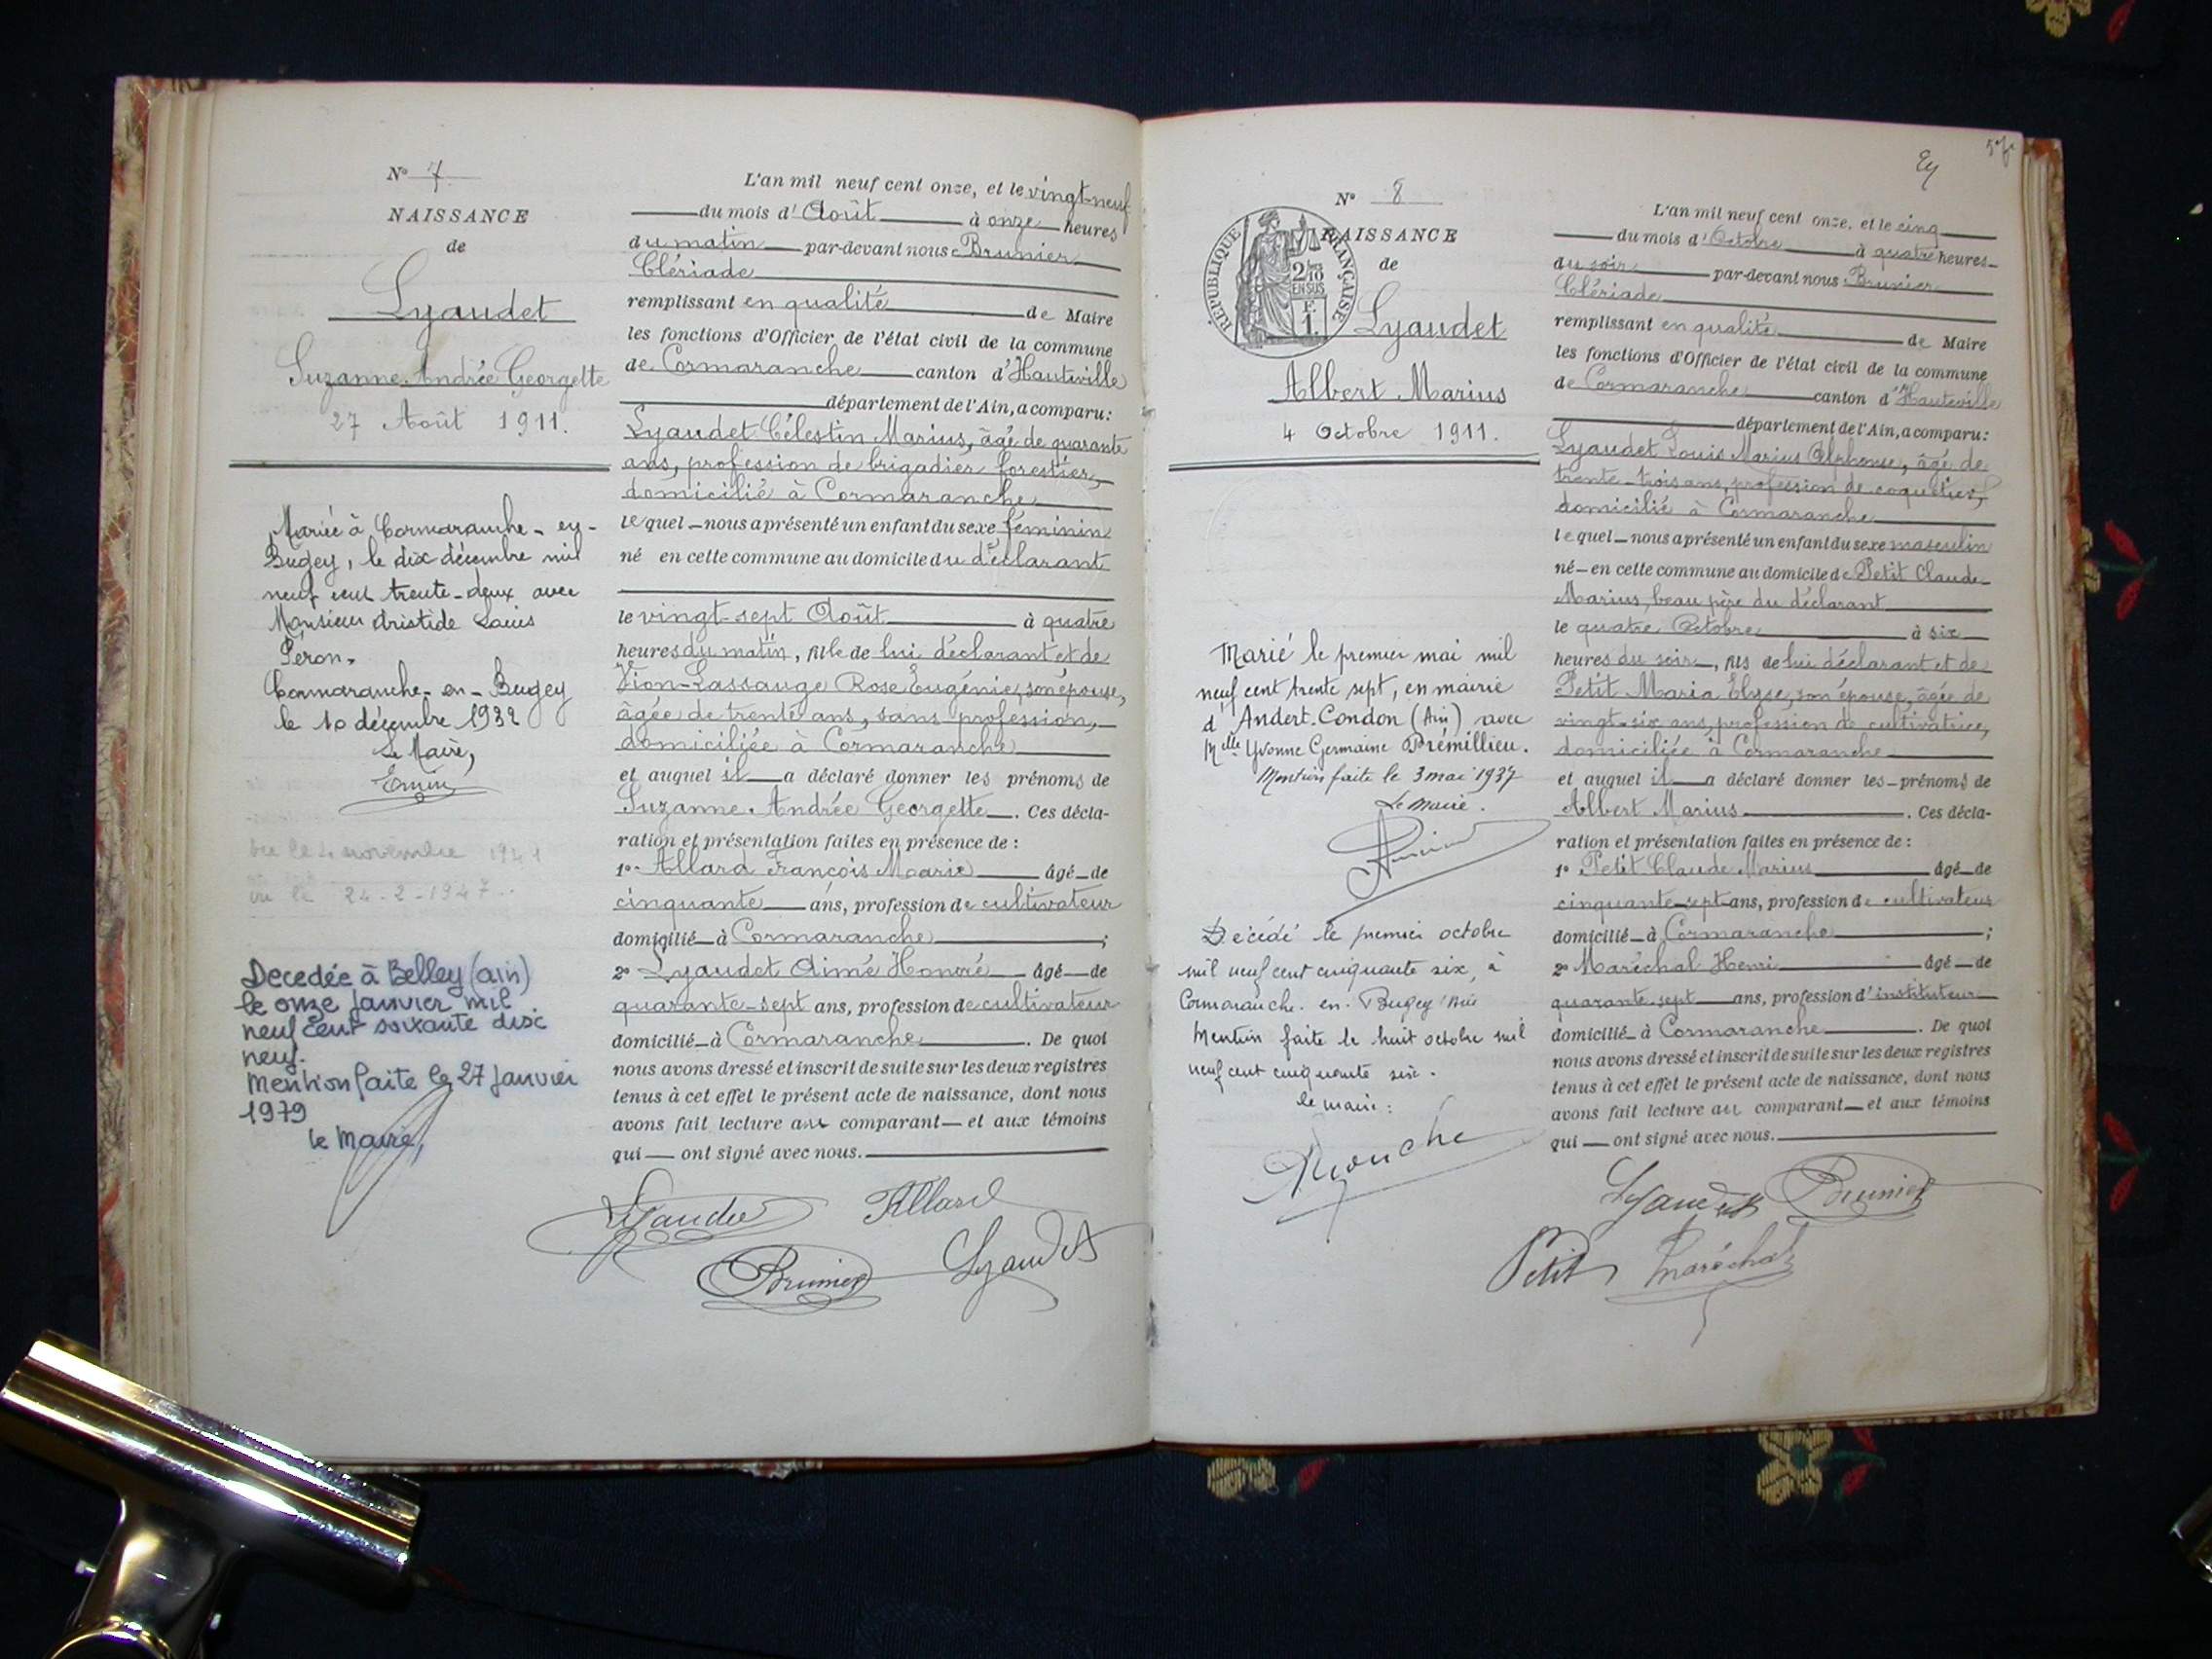 N° 7
NAISSANCE
de
Lyaudet
Suzanne Andrée Georgette
27 Août 1911.
Mariée à Cormaranche-en-
Bugey, le dix décembre mil
neuf cent trente-deux avec
Monsieur Aristide Louis
Péron.
Cormaranche-en-Bugey
le 10 décembre 1932
Le Maire,
vu le 4 novembre 1941
vu le 24-2-1947
Decedée à Belley (ain)
le onze janvier mil
neuf cent soixante disc
neuf.
Mention faite le 27 janvier
1979
le Maire,
L'an mil neuf cent onze, et le vingt-neuf
du mois d'Août à onze heures
du matin par-devant nous Brunier
Clériade
remplissant en qualité de Maire
les fonctions d'Officier de l'état civil de la commune
de Cormaranche canton d'Hauteville
département de l'Ain, a comparu:
Lyaudet Célestin Marius, âgé de quarante
ans, profession de brigadier forestier,
domicilié à Cormaranche
lequel nous a présenté un enfant du sexe féminin
né en cette commune au domicile du déclarant
le vingt-sept Août à quatre
heures du matin, fille de lui déclarant et de
Vion-Lassauge Rose Eugénie, son épouse,
âgée de trente ans, sans profession,
domiciliée à Cormaranche
et auquel il a déclaré donner les prénoms de
Suzanne Andrée Georgette. Ces décla-
ration et présentation faites en présence de :
1° Allard François Marie âgé de
cinquante ans, profession de cultivateur
domicilié à Cormaranche ;
2° Lyaudet Aimé Honoré âgé de
quarante-sept ans, profession de cultivateur
domicilié à Cormaranche. De quoi
nous avons dressé et inscrit de suite sur les deux registres
tenus à cet effet le présent acte de naissance, dont nous
avons fait lecture au comparant et aux témoins
qui ont signé avec nous.
Lyaudet Allard
Brunier Lyaudet
N° 8
RÉPUBLIQUE FRANÇAISE
2/10 EN SUS
F. 1.
NAISSANCE
de
Lyaudet
Albert Marius
4 Octobre 1911.
Marié le premier mai mil
neuf cent trente sept, en mairie
d'Andert-Condon (Ain) avec
Melle Yvonne Germaine Prémillieu.
Mention faite le 3 mai 1937
Le Maire.
Décédé le premier octobre
mil neuf cent cinquante six, à
Cormaranche-en-Bugey
Mention faite le huit octobre mil
neuf cent cinquante six.
le maire:
L'an mil neuf cent onze, et le cinq
du mois d'Octobre à quatre heures
du soir par-devant nous Brunier
Clériade
remplissant en qualité de Maire
les fonctions d'Officier de l'état civil de la commune
de Cormaranche canton d'Hauteville
département de l'Ain, a comparu:
Lyaudet Louis Marius Alphonse, âgé de
trente-trois ans, profession de coquetier,
domicilié à Cormaranche
lequel nous a présenté un enfant du sexe masculin
né en cette commune au domicile de Petit Claude
Marius, beau père du déclarant
le quatre Octobre à six
heures du soir, fils de lui déclarant et de
Petit Maria Elyse, son épouse, âgée de
vingt-six ans, profession de cultivatrice,
domiciliée à Cormaranche
et auquel il a déclaré donner les prénoms de
Albert Marius. Ces décla-
ration et présentation faites en présence de :
1° Petit Claude Marius âgé de
cinquante-sept ans, profession de cultivateur
domicilié à Cormaranche ;
2° Maréchal Henri âgé de
quarante-sept ans, profession d'instituteur
domicilié à Cormaranche. De quoi
nous avons dressé et inscrit de suite sur les deux registres
tenus à cet effet le présent acte de naissance, dont nous
avons fait lecture au comparant et aux témoins
qui ont signé avec nous.
Lyaudet Brunier
Petit Maréchal